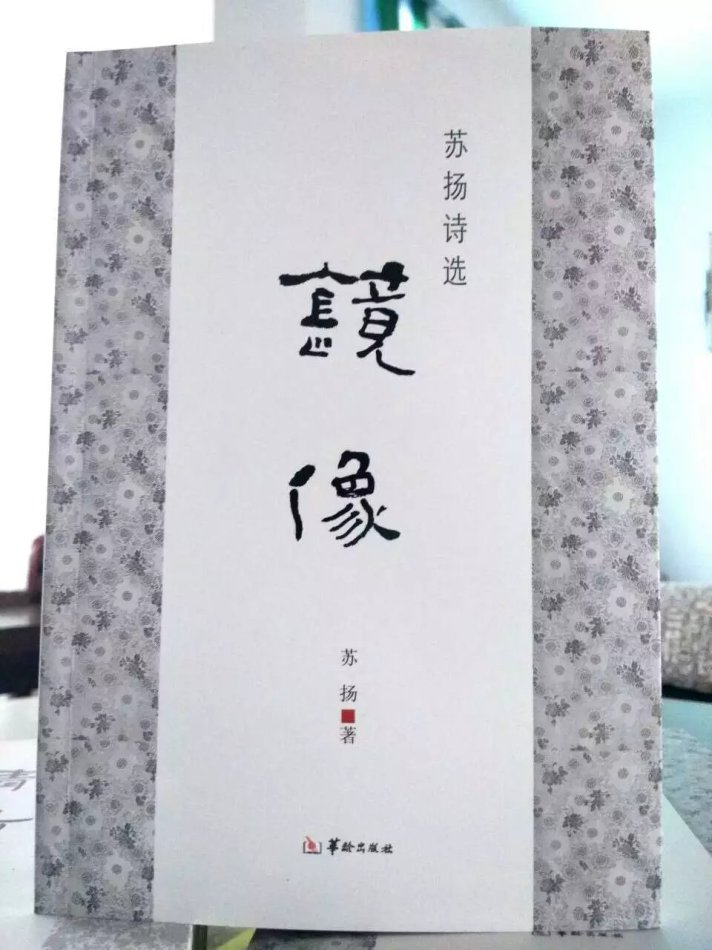 苏扬诗选
鏡像
苏扬■著
華龄出版社